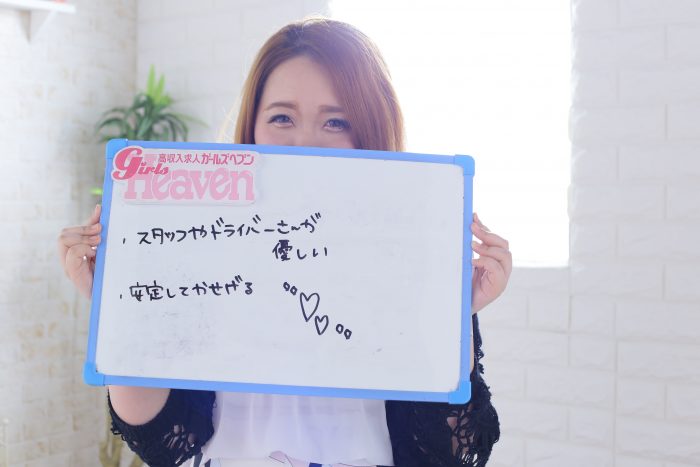 高収入求人ガールズヘブン
Girls
Heaven
・スタッフやドライバーさんが
優しい
・安定してかせげる